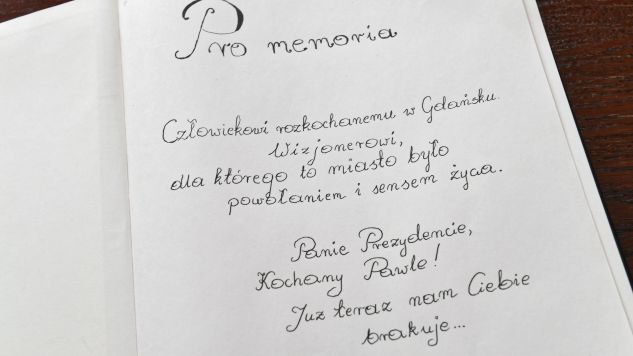 Pro memoria
Człowiekowi rozkochanemu w Gdańsku.
Wizjonerowi,
dla którego to miasto było
powołaniem i sensem życia.
Panie Prezydencie,
Kochany Pawle!
Już teraz nam Ciebie
brakuje...